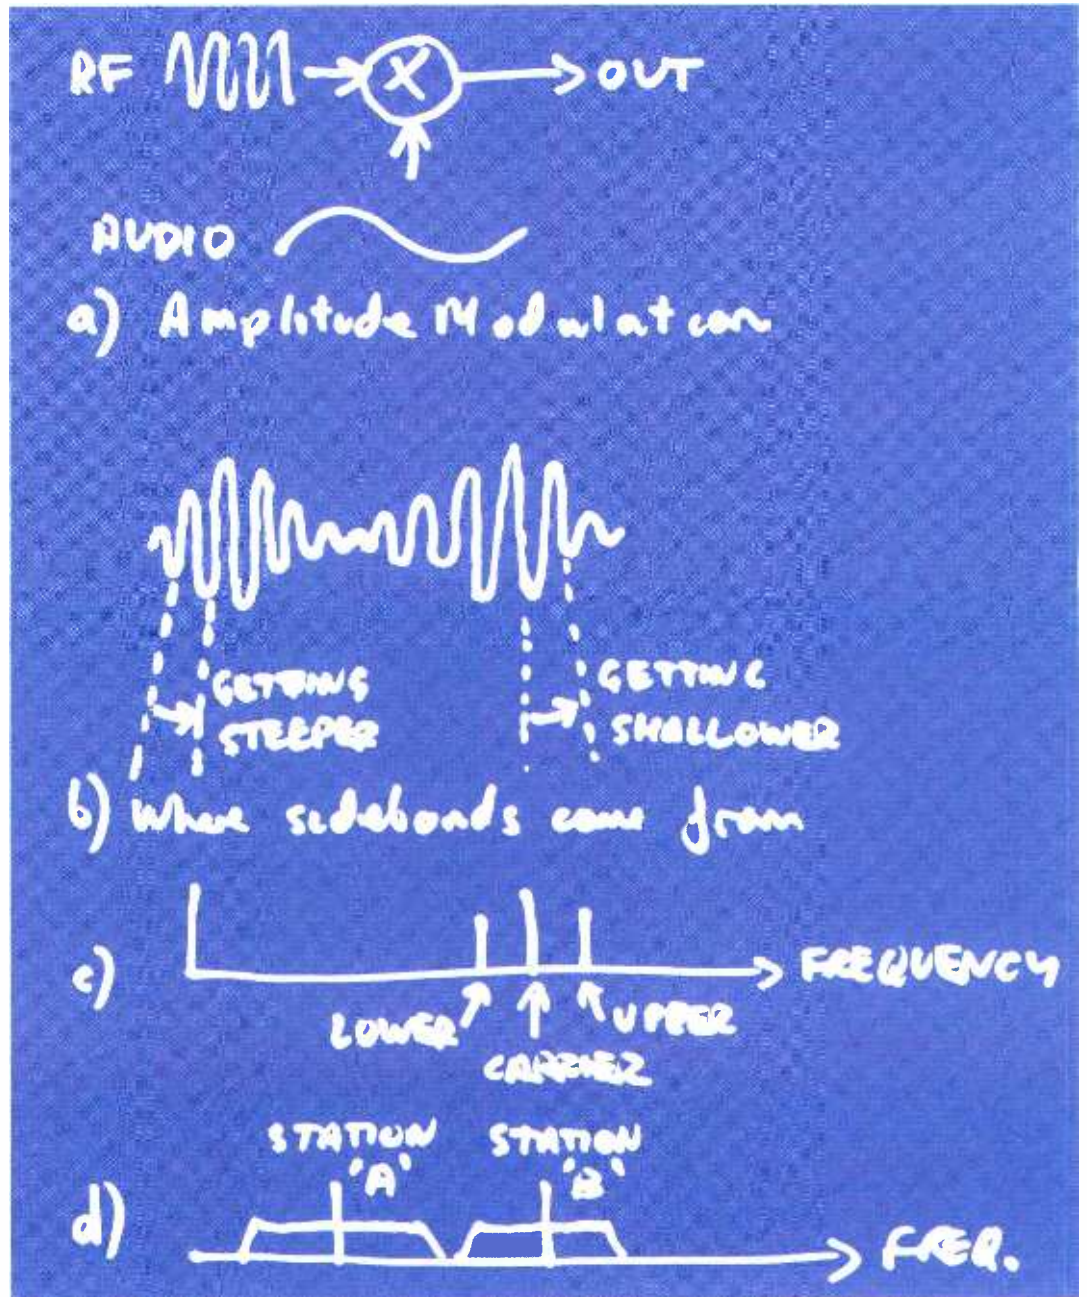 RF X OUT
AUDIO
a) Amplitude Modulation
GETTING
STEEPER
GETTING
SHALLOWER
b) Where sidebands come from
c) FREQUENCY
LOWER UPPER
CARRIER
STATION STATION
'A' 'B'
d) FREQ.